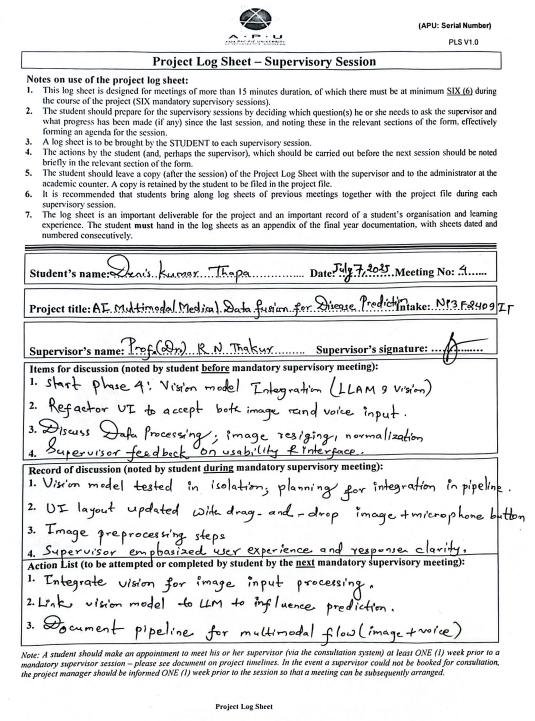 (APU: Serial Number)
A · P · U
PLS V1.0
Project Log Sheet – Supervisory Session
Notes on use of the project log sheet:
1. This log sheet is designed for meetings of more than 15 minutes duration, of which there must be at minimum SIX (6) during
the course of the project (SIX mandatory supervisory sessions).
2. The student should prepare for the supervisory sessions by deciding which question(s) he or she needs to ask the supervisor and
what progress has been made (if any) since the last session, and noting these in the relevant sections of the form, effectively
forming an agenda for the session.
3. A log sheet is to be brought by the STUDENT to each supervisory session.
4. The actions by the student (and, perhaps the supervisor), which should be carried out before the next session should be noted
briefly in the relevant section of the form.
5. The student should leave a copy (after the session) of the Project Log Sheet with the supervisor and to the administrator at the
academic counter. A copy is retained by the student to be filed in the project file.
6. It is recommended that students bring along log sheets of previous meetings together with the project file during each
supervisory session.
7. The log sheet is an important deliverable for the project and an important record of a student's organisation and learning
experience. The student must hand in the log sheets as an appendix of the final year documentation, with sheets dated and
numbered consecutively.
Student's name: Denis Kumar Thapa Date: July 7, 2025 Meeting No: 4
Project title: AI Multimodal Medical Data fusion for Disease Prediction Intake: NP3F2409IT
Supervisor's name: Prof.(Dr) R N Thakur Supervisor's signature:
Items for discussion (noted by student before mandatory supervisory meeting):
1. Start phase 4: Vision model Integration (LLAM 9 vision)
2. Refactor UI to accept both image and voice input.
3. Discuss Data Processing; image resizing, normalization
4. Supervisor feedback on usability & interface.
Record of discussion (noted by student during mandatory supervisory meeting):
1. Vision model tested in isolation; planning for integration in pipeline.
2. UI layout updated with drag-and-drop image + microphone button
3. Image preprocessing steps
4. Supervisor emphasized user experience and response clarity.
Action List (to be attempted or completed by student by the next mandatory supervisory meeting):
1. Integrate vision for image input processing.
2. Link vision model to LLM to influence prediction.
3. Document pipeline for multimodal flow (image + voice)
Note: A student should make an appointment to meet his or her supervisor (via the consultation system) at least ONE (1) week prior to a
mandatory supervisor session – please see document on project timelines. In the event a supervisor could not be booked for consultation,
the project manager should be informed ONE (1) week prior to the session so that a meeting can be subsequently arranged.
Project Log Sheet